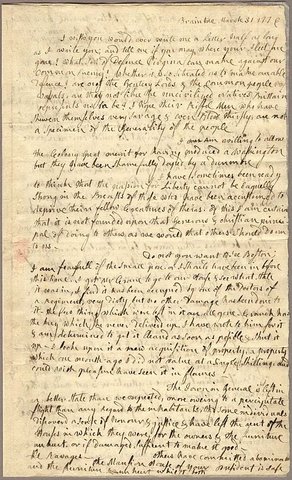 Braintree March 31 1776
I wish you would ever write me a Letter half as long
as I write you; and tell me if you may where your Fleet are
gone? What sort of Defence Virginia can make against our
common Enemy? Whether it is so situated as to make an able
Defence? are not the Gentery Lords and the common people
vassals, are they not like the uncivilized Natives Brittain
represents us to be? I hope their Riffel Men who have
shewen themselves very savage and even Blood thirsty; are not
a specimen of the Generality of the people
I am willing to allow
the Colony great merrit for having produced a Washington
but they have been shamefully duped by a Dunmore
I have sometimes been ready
to think that the passion for Liberty cannot be Equally
Strong in the Breasts of those who have been accustomed to
deprive their fellow Creatures of theirs. Of this I am certain
that it is not founded upon that generous and christian princi
pal of doing to others as we would that others should do un
to us
Do not you want to see Boston;
I am fearfull of the small pox, or I should have been in before
this time. I got Mr Crane to go to our House and see what state
it was in. I find it has been occupied by one of the Doctors of
a Regiment, very dirty but no other Damage has been done to
it. The few things which were left in it are all gone. Cranch has
the key which he never deliverd up. I have wrote to him for it
and am determined to get it cleand as soon as posible and shut it
up. I look upon it a new acquisition of property, a property
which one month ago I did not value at a single Shilling, and
could with pleasure have seen it in flames
The Town in General is left in
a better state than we expected, more oweing to a percipitate
flight than any Regard to the inhabitants, tho some individuals
discoverd a sense of honour and justice and have left the rent of the
Houses in which they were, for the owners and the furniture
unhurt, or if damaged sufficent to make it good
others have committed abominable
Ravages. The Mansion House of your President is safe
and the furniture unhurt whilst both